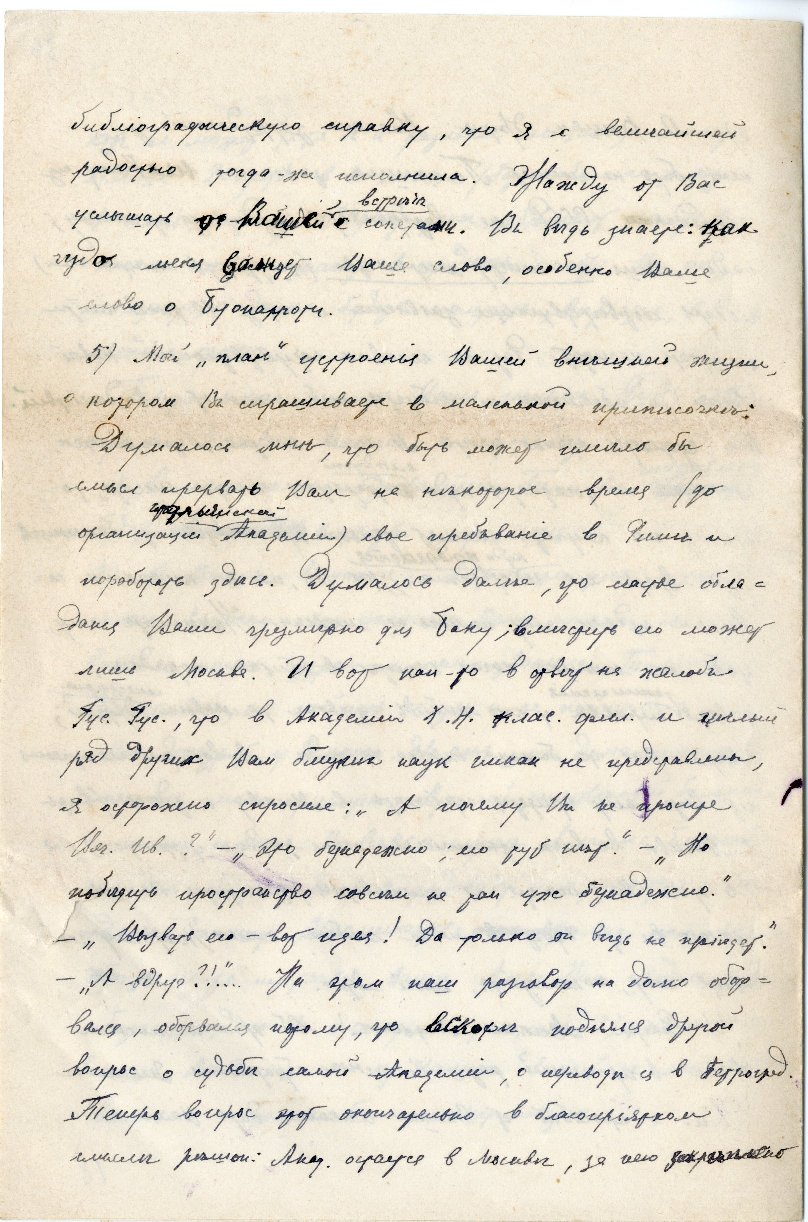 библiографическую справку, что я с величайшей
радостью тогда-же исполнила. Жажду от Вас
встрѣчи
услышать о Вашей с соператн. Вы вѣдь знаете: как
чудо меня волнует Ваше слово, особенно Ваше
слово о Буонарроти.
5) Мой „план" устроенiя Вашей внѣшней жизни,
о котором Вы спрашиваете в маленькой приписочкѣ:
Думалось мнѣ, что быть может имѣло бы
смысл прервать Вам на нѣкоторое время (до
организацiи Академiи) свое пребыванiе в Римѣ и
поработать здѣсь. Думалось далѣе, что счастье обла-
данья Вами чрезмѣрно для Баку; вмѣстить его может
лишь Москва. И вот как-то в отвѣт на жалобы
Гус. Гус., что в Академiи Х. Н. клас. фил. и цѣлый
ряд других Вам близких наук никак не представлены,
я осторожно спросила: „А почему Вы не просите
Вяч. Ив. ?" – „Это безнадежно; его тут нѣт." – „Но
побѣдить пространство совсѣм не так уж безнадежно."
– „Вызвать его – вот идея! Да только он вѣдь не прiѣдет."
– „А вдруг?!".... На этом наш разговор надолго обор-
вался, оборвался потому, что вскорѣ поднялся другой
вопрос о судьбѣ самой Академiи, о переводѣ ея в Петроград.
Теперь вопрос этот окончательно в благопрiятном
смыслѣ рѣшон: Акад. остается в Москвѣ, за нею